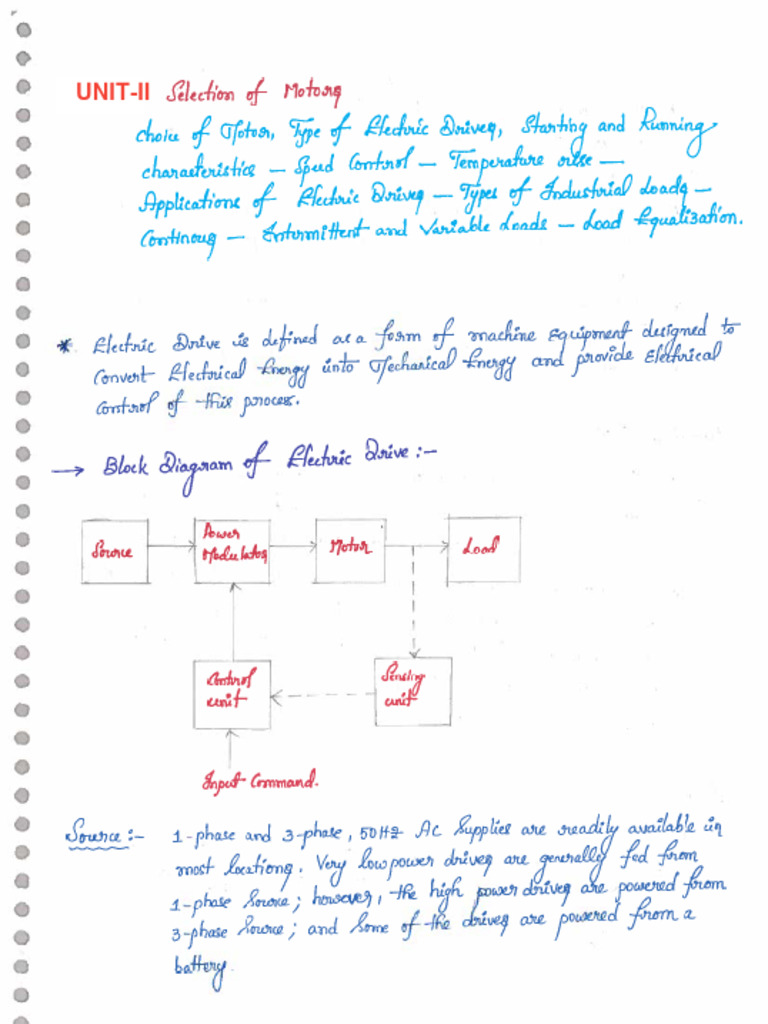 UNIT-II Selection of Motors
Choice of Motor, Type of Electric Drives, Starting and Running
characteristics – Speed Control – Temperature rise –
Applications of Electric Drives – Types of Industrial Loads –
Continous – Intermittent and Variable Loads – Load Equalization.
* Electric Drive is defined as a form of machine Equipment designed to
Convert Electrical Energy into Mechanical Energy and provide Electrical
Control of this process.
→ Block Diagram of Electric Drive :-
Source
Power
Modulator
Motor
Load
Control
unit
Sensing
unit
Input Command.
Source :- 1-phase and 3-phase, 50Hz AC Supplies are readily available in
most locations. Very low power drives are generally fed from
1-phase Source; however, the high power drives are powered from
3-phase Source; and Some of the drives are powered from a
battery.